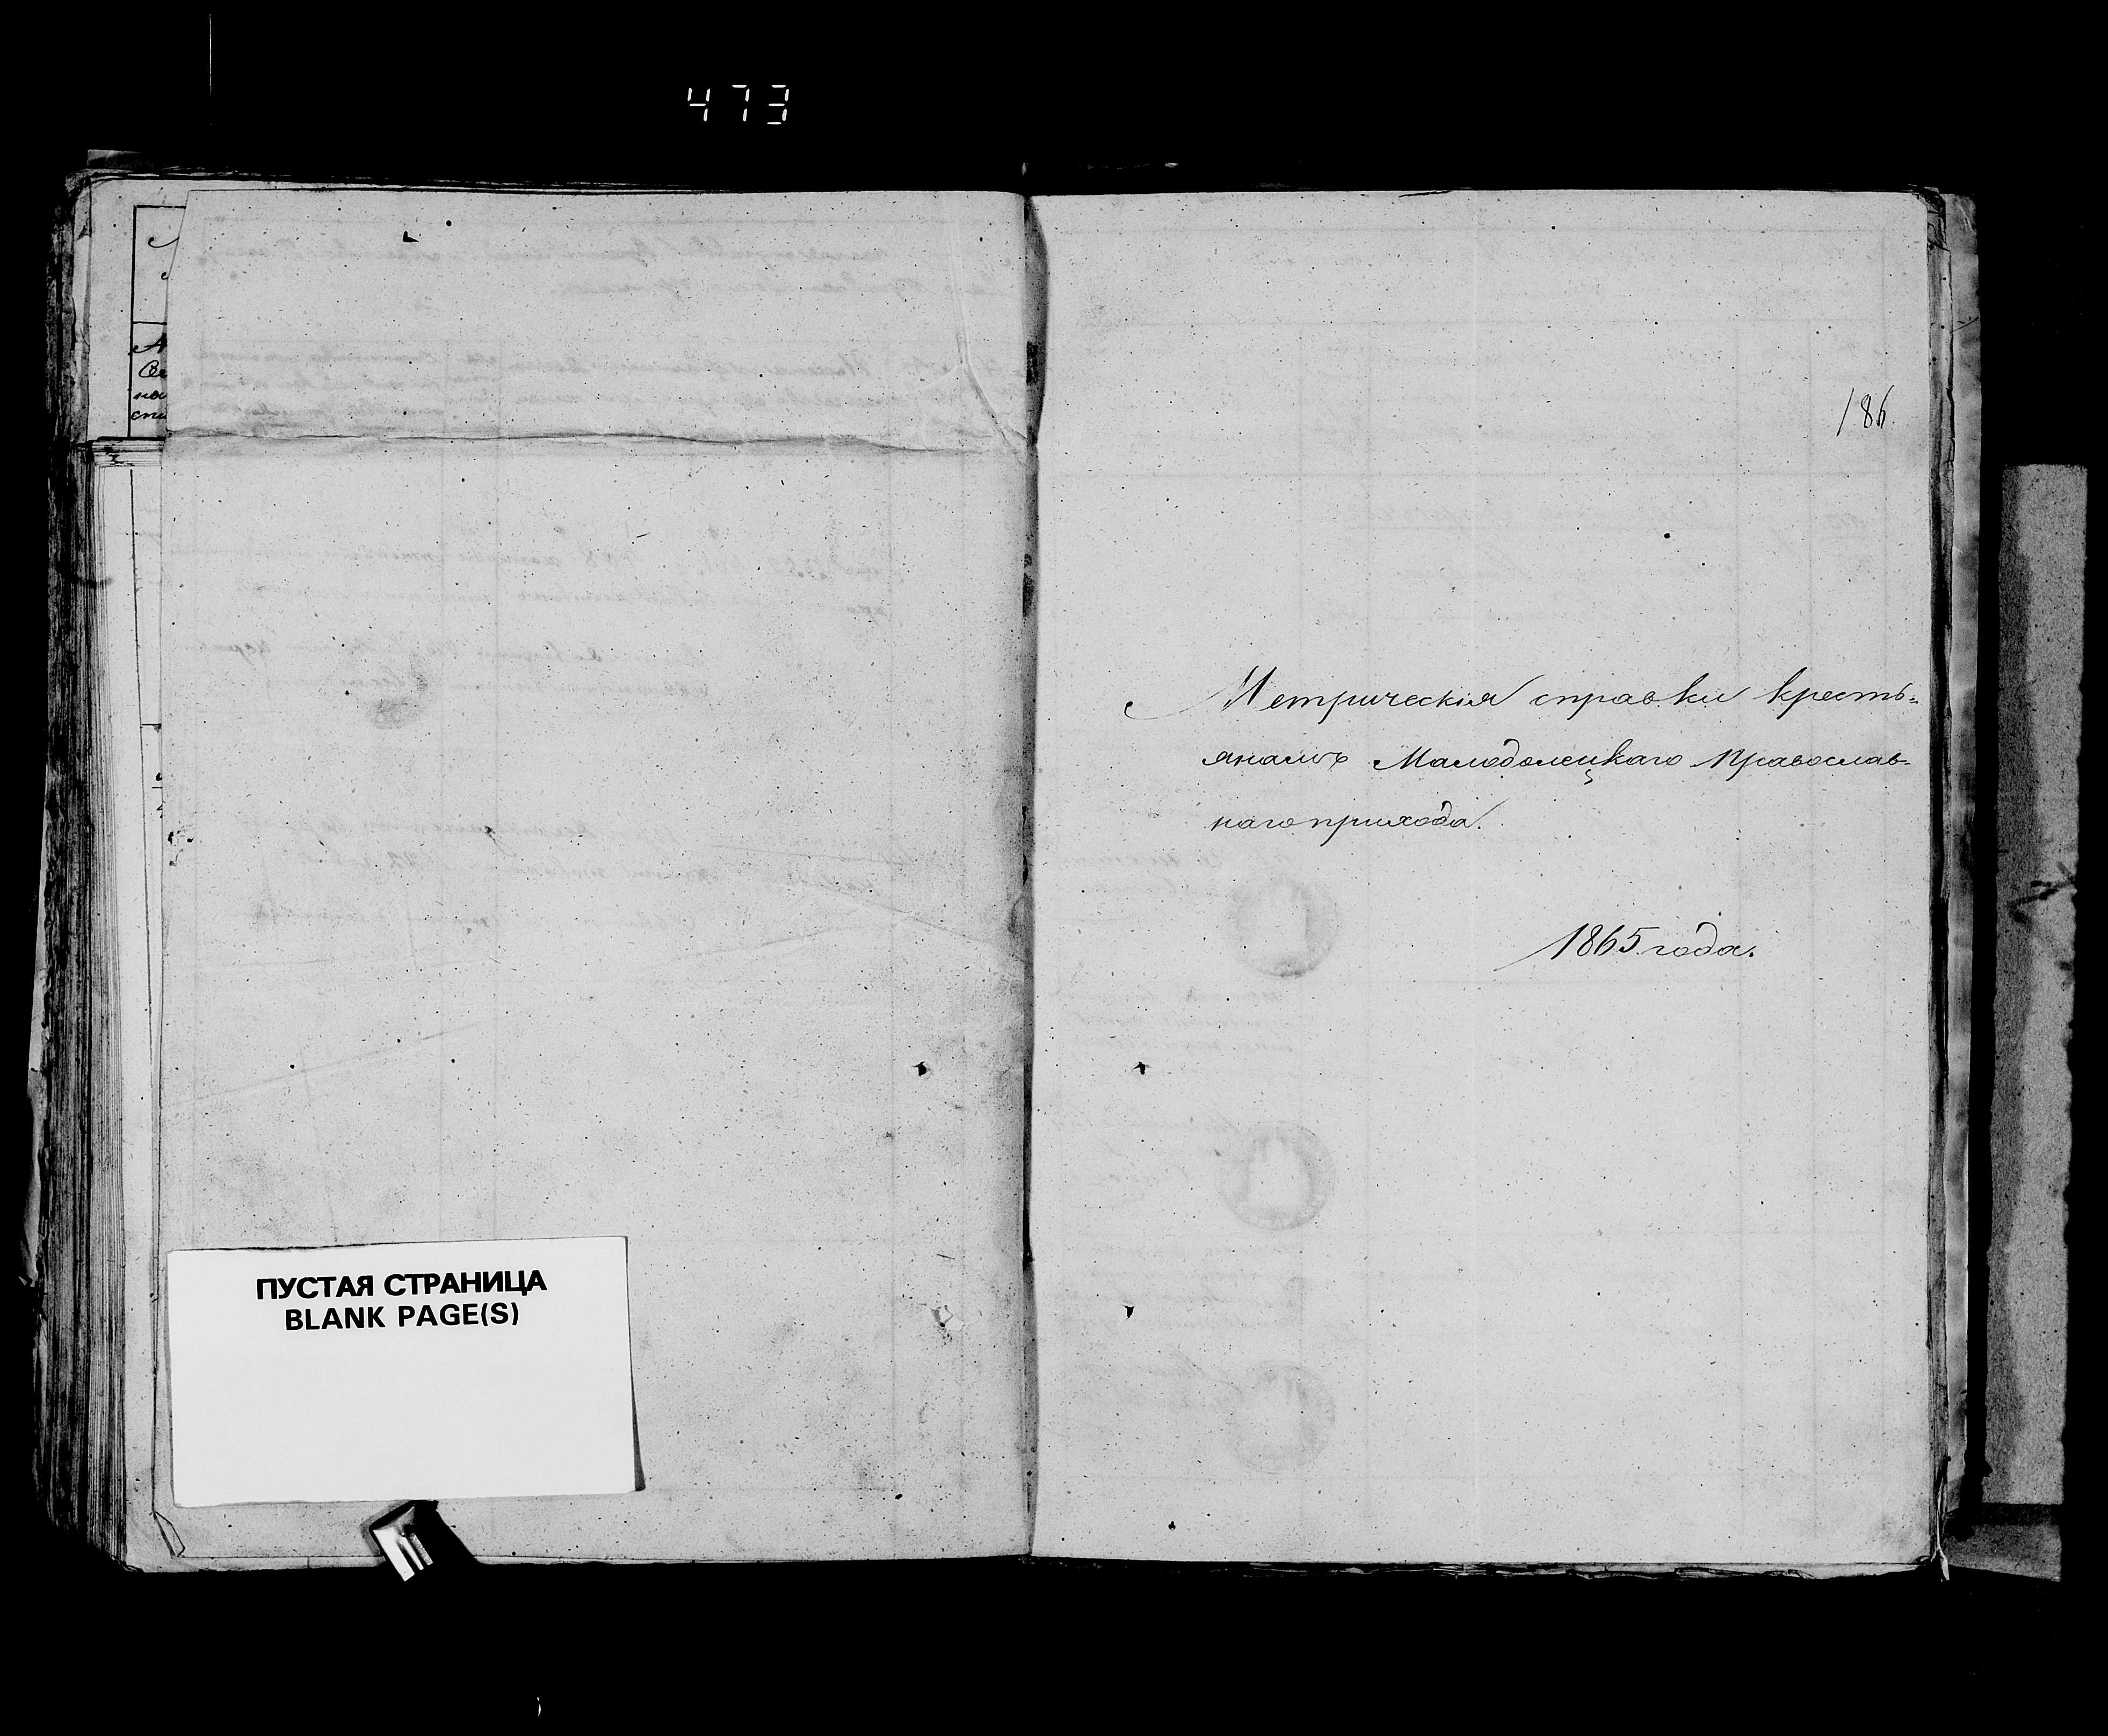 473
186.
Метрическія справки кресть=
янамъ Малодолецкаго Православ-
наго прихода.
1865 года.
ПУСТАЯ СТРАНИЦА
BLANK PAGE(S)